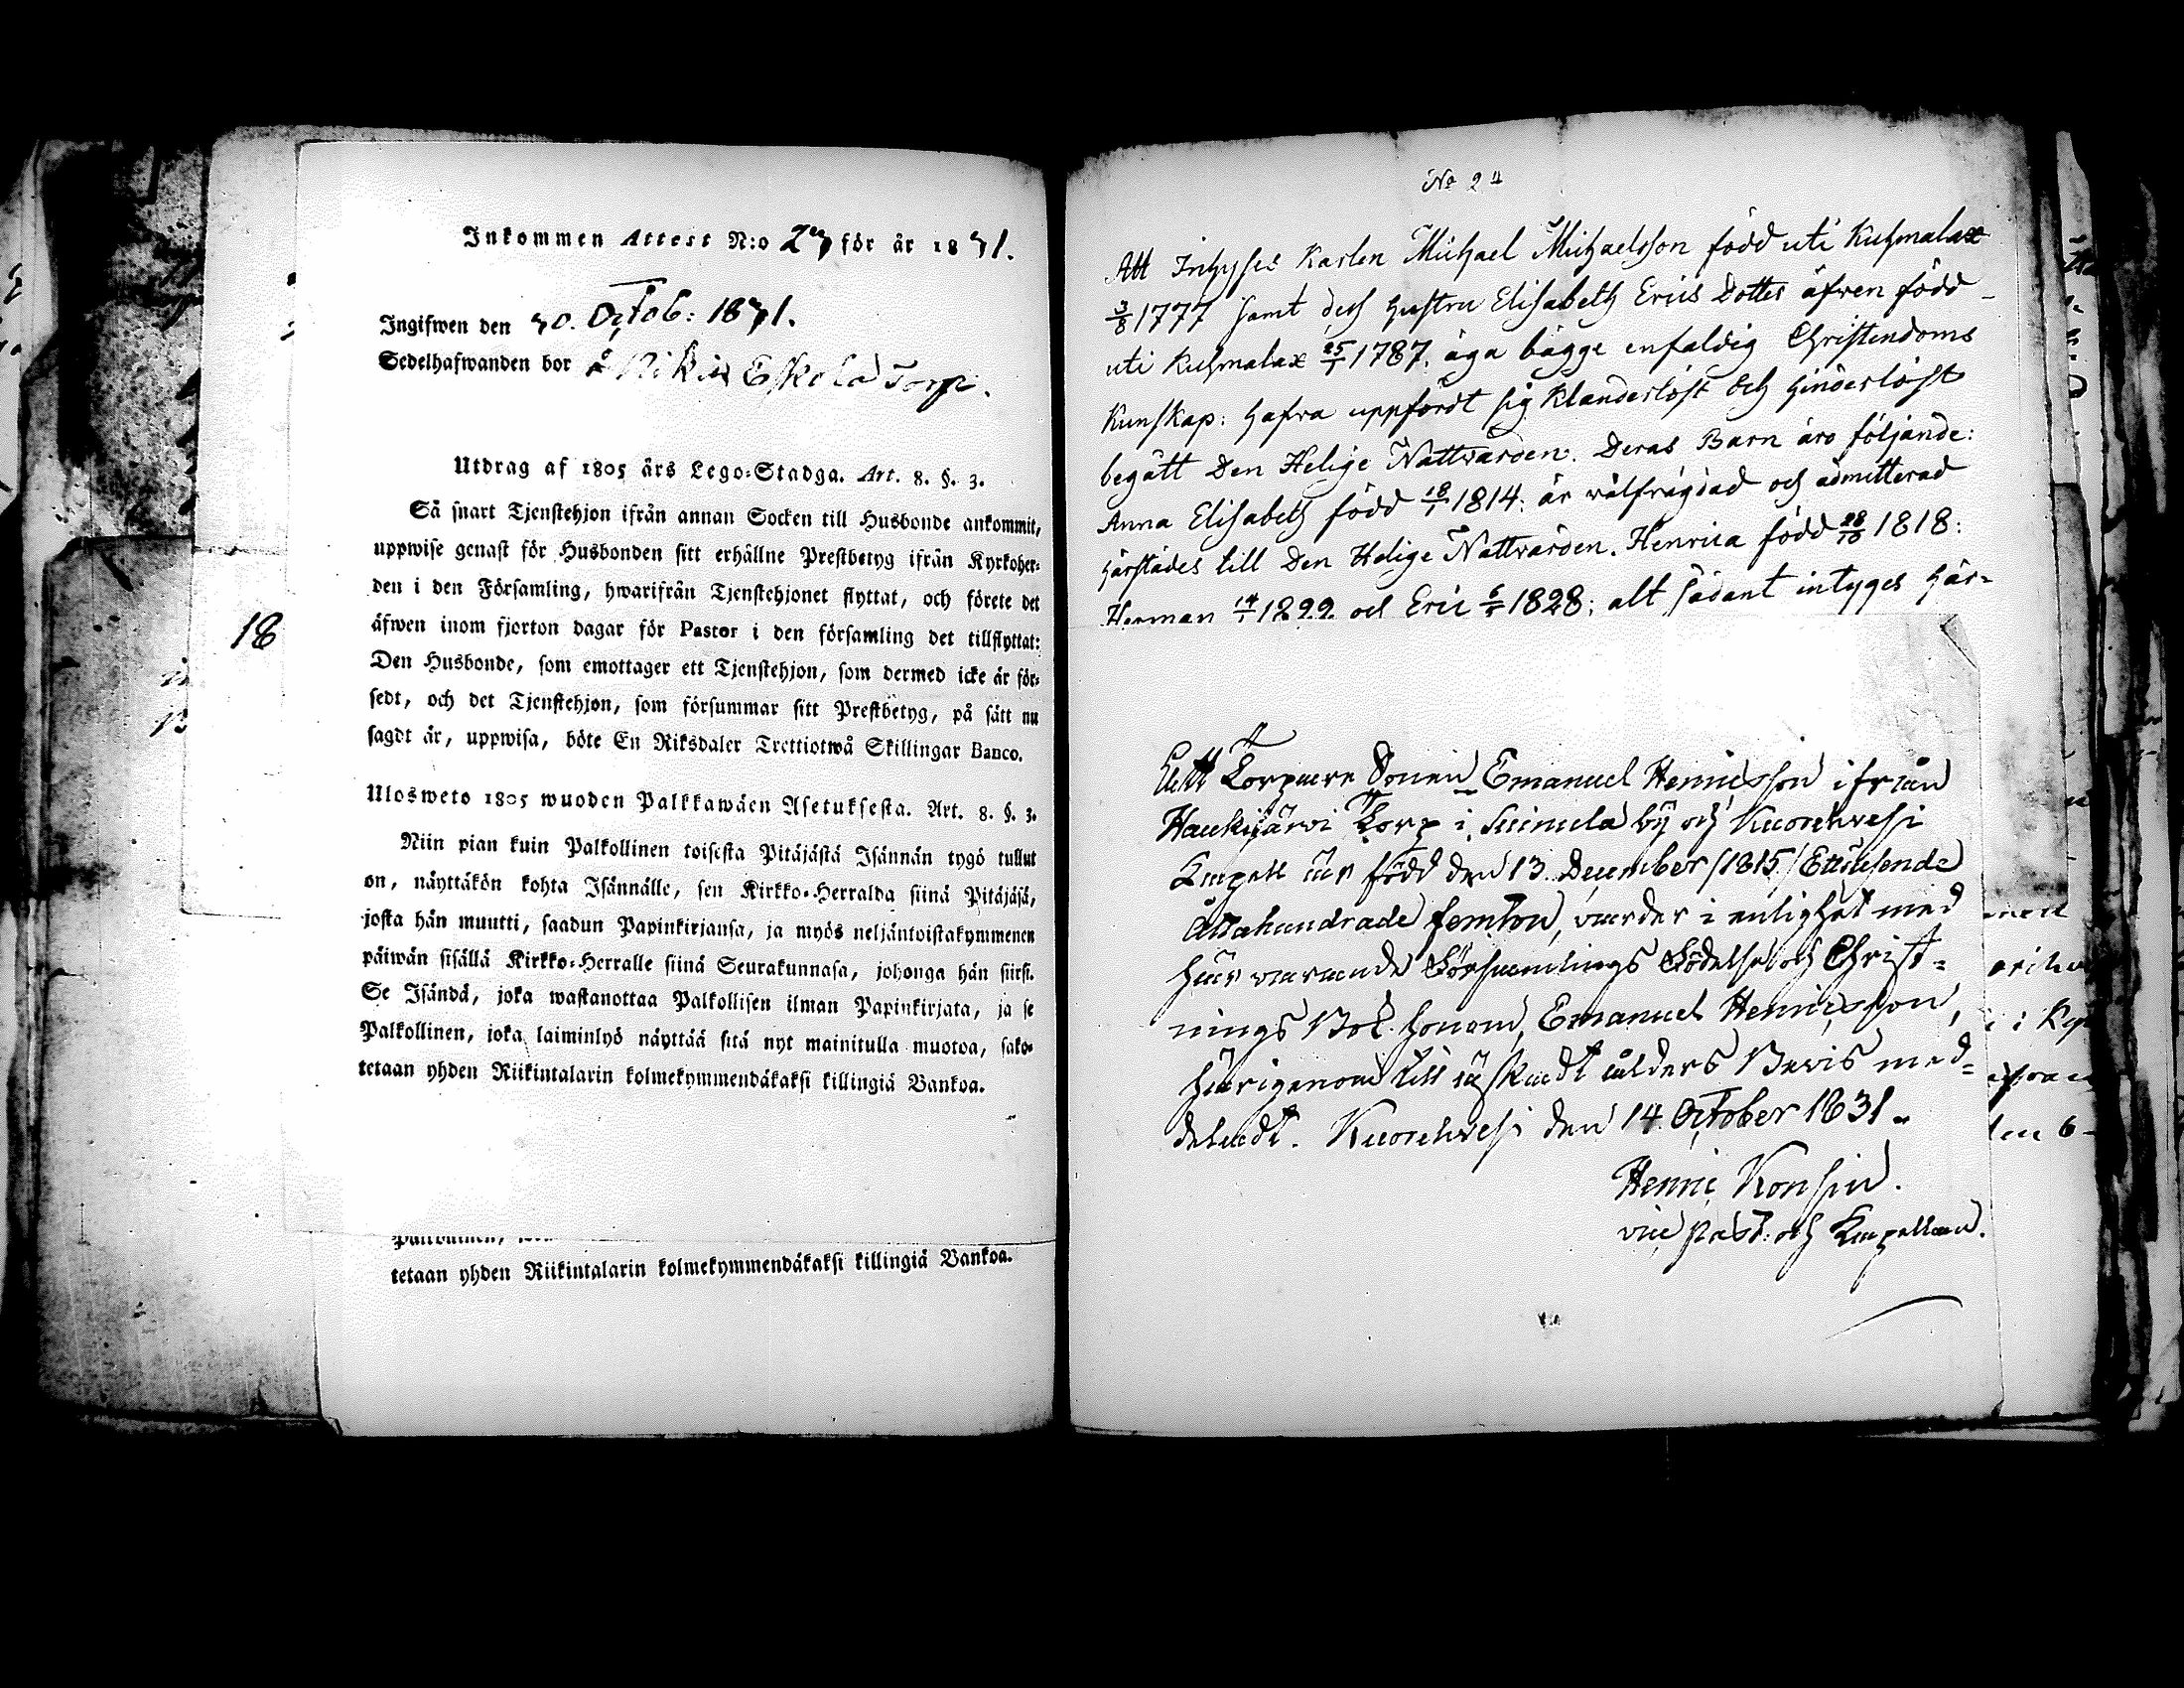 Inkommen Attest N:o 23 för år 1831.
Ingifwen den 30. Octob: 1831.
Sedelhafwanden bor å Eskola Torp.
Utdrag af 1805 års Lego-Stadga. Art. 8. §. 3.
Så snart Tjenstehjon ifrån annan Socken till Husbonde ankommit,
uppwise genast för Husbonden sitt erhållne Prestbetyg ifrån Kyrkoher-
den i den Församling, hwarifrån Tjenstehjonet flyttat, och förete det
äfwen inom fjorton dagar för Pastor i den församling det tillflyttat:
Den Husbonde, som emottager ett Tjenstehjon, som dermed icke är för-
sedt, och det Tjenstehjon, som försummar sitt Prestbetyg, på sätt nu
sagdt är, uppwisa, böte En Riksdaler Trettiotwå Skillingar Banco.
Ulosweto 1805 wuoden Palkkawäen Asetuksesta. Art. 8. §. 3.
Niin pian kuin Palkollinen toisesta Pitäjästä Isännän tygö tullut
on, näyttäkön kohta Isännälle, sen Kirkko-Herralda siinä Pitäjäsä,
josta hän muutti, saadun Papinkirjansa, ja myös neljäntoistakymmenen
päiwän sisällä Kirkko-Herralle siinä Seurakunnasa, johonga hän siirsi.
Se Isändä, joka wastanottaa Palkollisen ilman Papinkirjata, ja se
Palkollinen, joka laiminlyö näyttää sitä nyt mainitulla muotoa, sako-
tetaan yhden Riikintalarin kolmekymmendäkaksi killingiä Bankoa.
tetaan yhden Riikintalarin kolmekymmendäkaksi killingiä Bankoa.
18
No 24
Att Inhyses Karlen Michael Michaelsson född uti Kuhmalax
3/8 1777 samt dess hustru Elisabeth Erics Dotter äfven född
uti Kuhmalax 25/1 1787. äga bägge enfaldig Christendoms
Kunskap: hafva uppfördt sig klanderlöst och hinderlöst
begått Den Helige Nattvarden. Deras Barn äro följande:
Anna Elisabeth född 18/1 1814: är välfrägdad och admitterad
härstädes till Den Helige Nattvarden. Henrica född 28/10 1818:
Herman 14/1 1822 och Eric 6/5 1828; alt sådant intyges här-
Att Torpare Sonen Emanuel Henricsson ifrån
Haukijärvi Torp i Suinula by och Kuorehvesi
Capell är född den 13 December /1815/ Ettusende
Åttahundrade femton, varder i enlighet med
här varande Församlings Födelse och Christ-
nings Bok honom, Emanuel Henricsson,
härigenom till äskadt ålders Bevis med-
deladt. Kuorehvesi den 14 October 1831.
Henric Konsin.
vice Past: och Capellan.